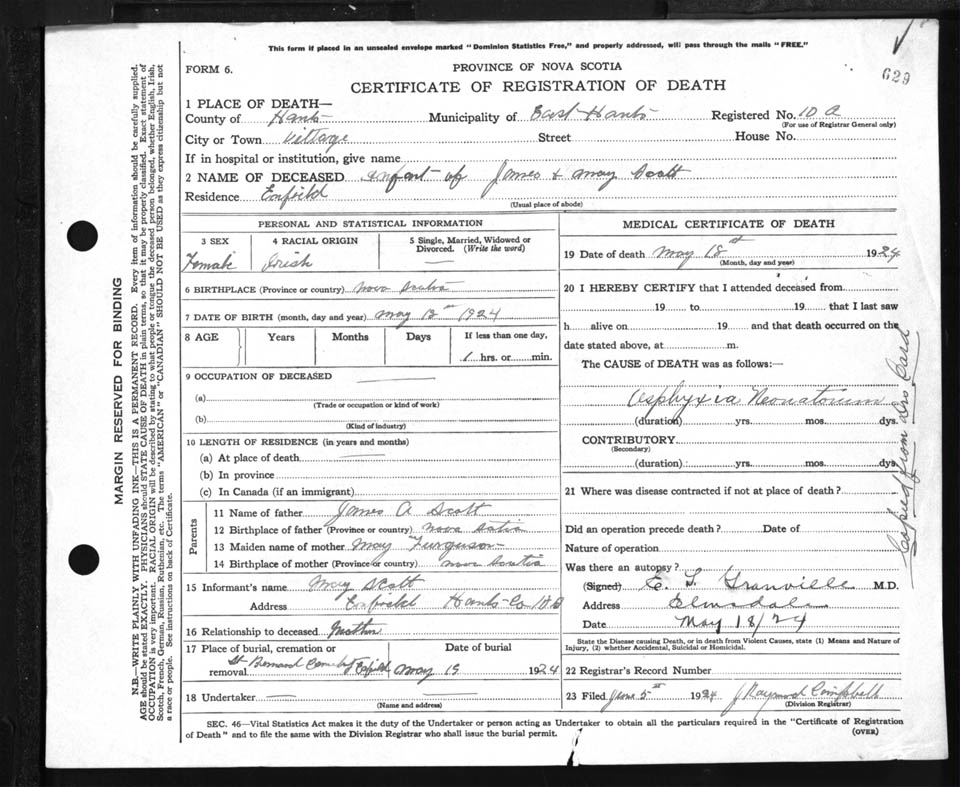 This form if placed in an unsealed envelope marked "Dominion Statistics Free," and properly addressed, will pass through the mails "FREE."
629
FORM 6.
PROVINCE OF NOVA SCOTIA
CERTIFICATE OF REGISTRATION OF DEATH
1 PLACE OF DEATH—
County of Hants Municipality of East Hants Registered No. 10 A
(For use of Registrar General only)
City or Town Village Street House No.
If in hospital or institution, give name
2 NAME OF DECEASED Infant of James & May Scott
Residence Enfield
(Usual place of abode)
PERSONAL AND STATISTICAL INFORMATION
3 SEX 4 RACIAL ORIGIN 5 Single, Married, Widowed or Divorced. (Write the word)
Female Irish —
6 BIRTHPLACE (Province or country) Nova Scotia
7 DATE OF BIRTH (month, day and year) May 1924
8 AGE Years Months Days If less than one day,
1 hrs. or min.
9 OCCUPATION OF DECEASED
(a)
(Trade or occupation or kind of work)
(b)
(Kind of industry)
10 LENGTH OF RESIDENCE (in years and months)
(a) At place of death
(b) In province
(c) In Canada (if an immigrant)
Parents
11 Name of father James A Scott
12 Birthplace of father (Province or country) Nova Sotia
13 Maiden name of mother May Furguson
14 Birthplace of mother (Province or country) Nova Scotia
15 Informant's name May Scott
Address Enfield Hants Co
16 Relationship to deceased Mother
17 Place of burial, cremation or removal Date of burial
St Bernard Enfield May 19 1924
18 Undertaker —
(Name and address)
MEDICAL CERTIFICATE OF DEATH
19 Date of death May 18st 1924
(Month, day and year)
20 I HEREBY CERTIFY that I attended deceased from
19 to 19 that I last saw
h alive on 19 and that death occurred on the
date stated above, at m.
The CAUSE OF DEATH was as follows:—
Asphyxia Neonatorium
(duration) yrs. mos. dys.
CONTRIBUTORY
(Secondary)
(duration) yrs. mos. dys.
21 Where was disease contracted if not at place of death?
Did an operation precede death? Date of
Nature of operation
Was there an autopsy?
(Signed) E. L. Granville M.D.
Address Elmsdale
Date May 18/24
State the Disease causing Death, or in death from Violent Causes, state (1) Means and Nature of
Injury, (2) whether Accidental, Suicidal or Homicidal.
22 Registrar's Record Number
23 Filed June 5th 1924 J Raymond Campbell
(Division Registrar)
SEC. 46—Vital Statistics Act makes it the duty of the Undertaker or person acting as Undertaker to obtain all the particulars required in the "Certificate of Registration
of Death" and to file the same with the Division Registrar who shall issue the burial permit.
(OVER)
Copied from Drs Card
MARGIN RESERVED FOR BINDING
N.B.—WRITE PLAINLY WITH UNFADING INK—THIS IS A PERMANENT RECORD. Every item of information should be carefully supplied.
AGE should be stated EXACTLY. PHYSICIANS should STATE CAUSE OF DEATH in plain terms, so that it may be properly classified. Exact statement of
OCCUPATION is very important. RACIAL ORIGIN will be described by stating to what people or tongue the deceased person belonged, whether English, Irish,
Scotch, French, German, Russian, Ruthenian, etc. The terms "AMERICAN" or "CANADIAN" SHOULD NOT BE USED as they express citizenship but not
a race or people. See instructions on back of Certificate.